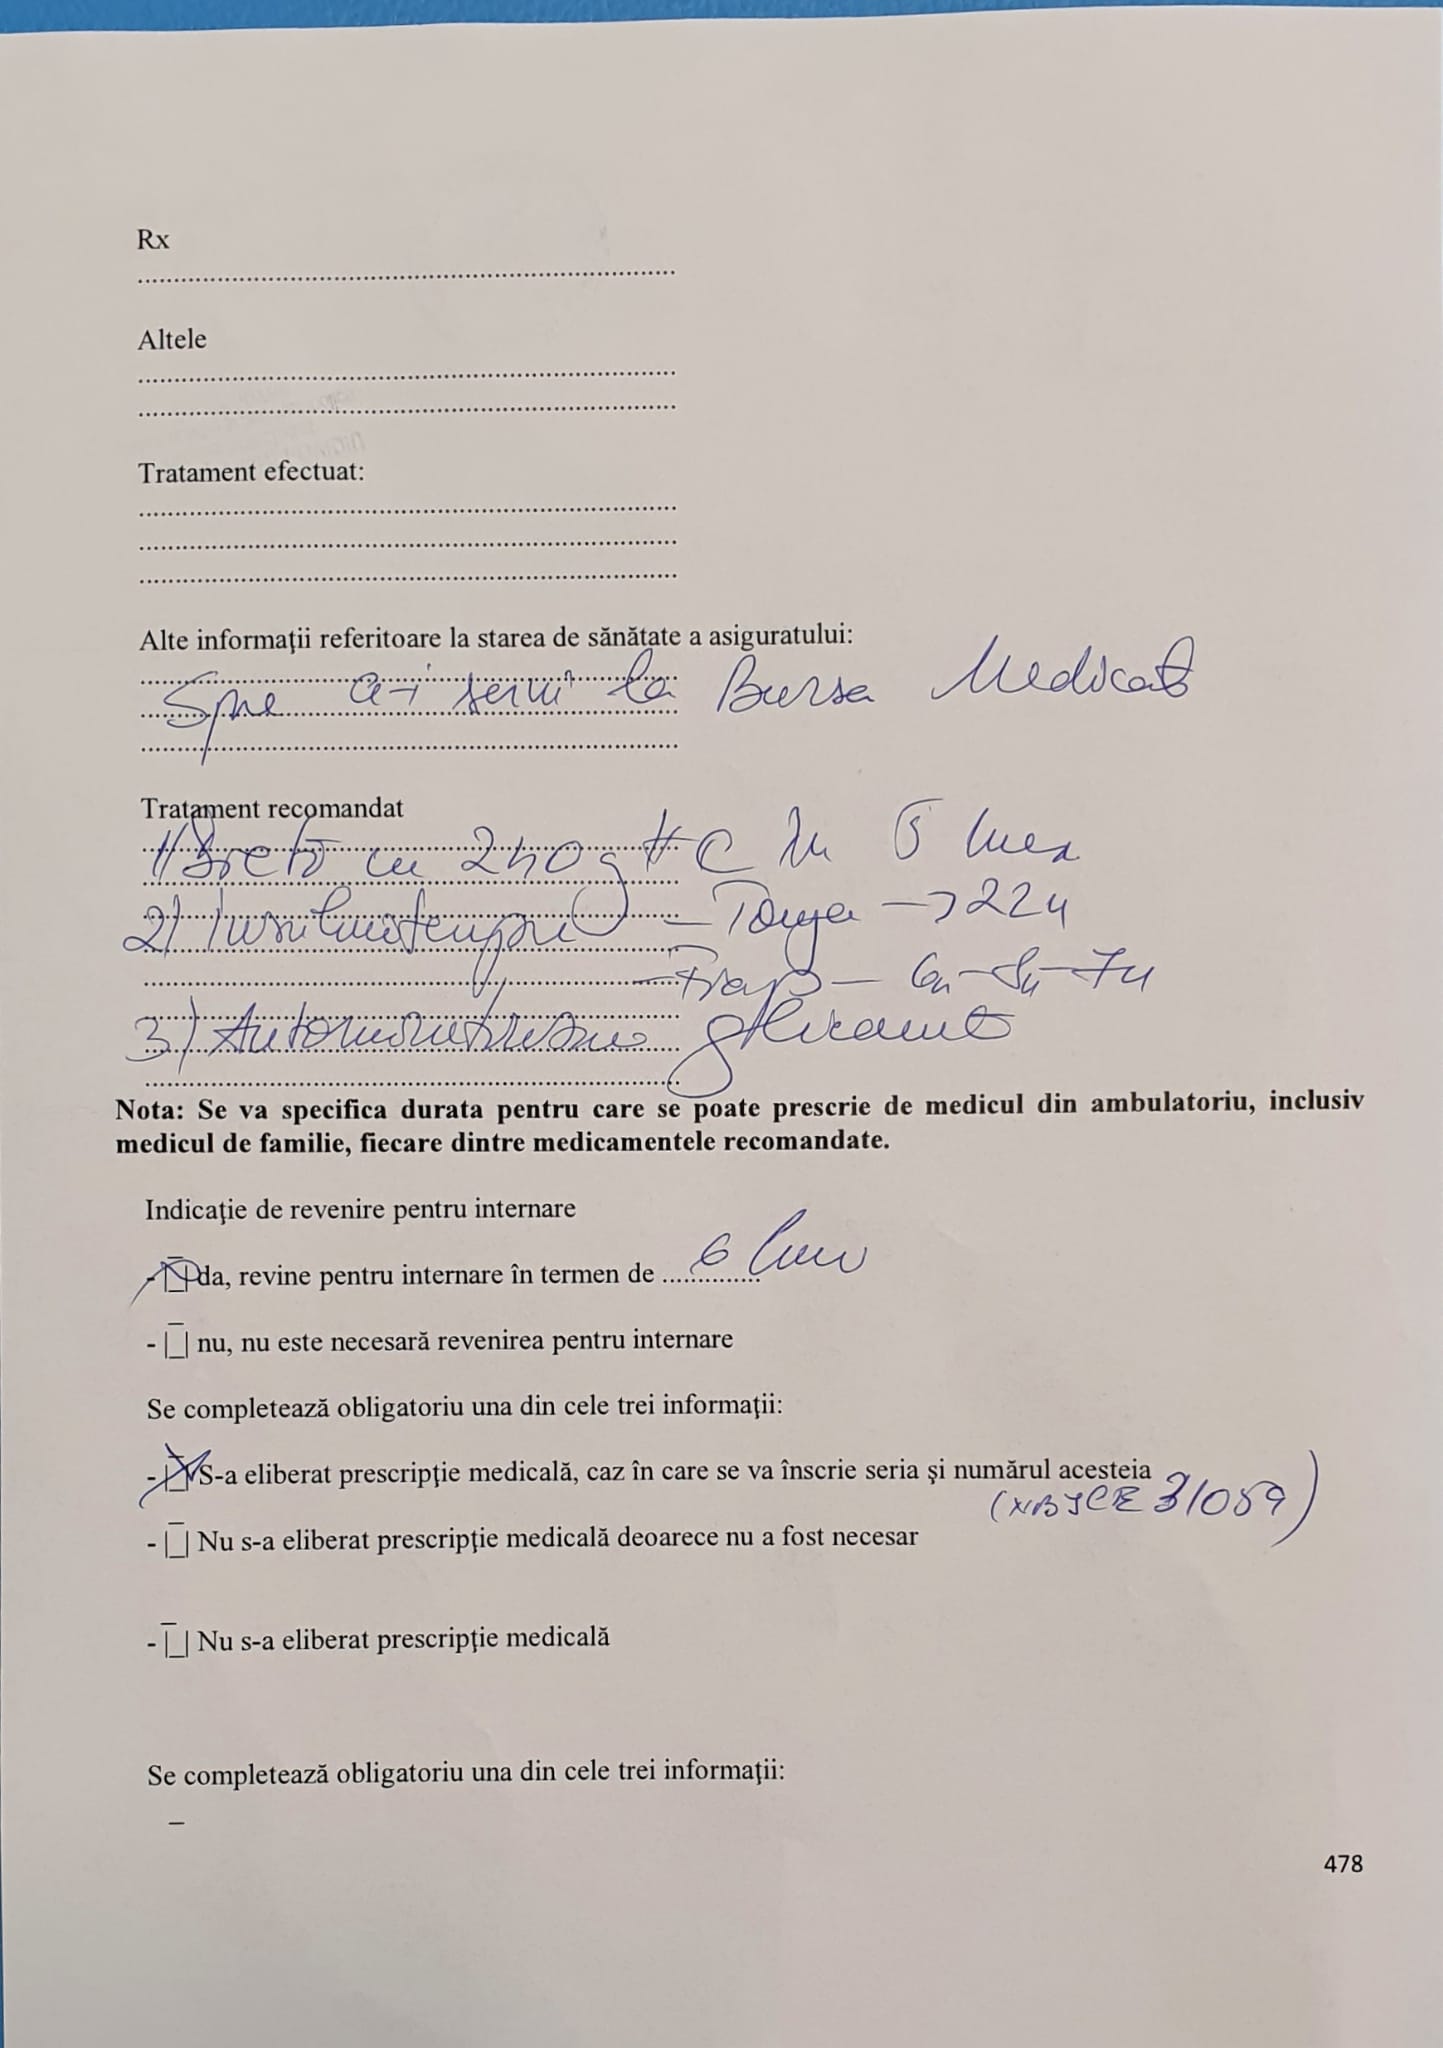 Rx
Altele
Tratament efectuat:
Alte informaţii referitoare la starea de sănătate a asiguratului:
Spre a-i servi la Bursa Medicală
Tratament recomandat
1) Dietă cu 240g HC în 5 mese
2) - Toujeo → 22u
- Fiasp - 6u-8u-7u
3) Automonitorizare glicemică
Nota: Se va specifica durata pentru care se poate prescrie de medicul din ambulatoriu, inclusiv
medicul de familie, fiecare dintre medicamentele recomandate.
Indicaţie de revenire pentru internare
- |_| da, revine pentru internare în termen de 6 luni
- |_| nu, nu este necesară revenirea pentru internare
Se completează obligatoriu una din cele trei informaţii:
- |_| S-a eliberat prescripţie medicală, caz în care se va înscrie seria şi numărul acesteia
31059)
- |_| Nu s-a eliberat prescripţie medicală deoarece nu a fost necesar
- |_| Nu s-a eliberat prescripţie medicală
Se completează obligatoriu una din cele trei informaţii:
_
478